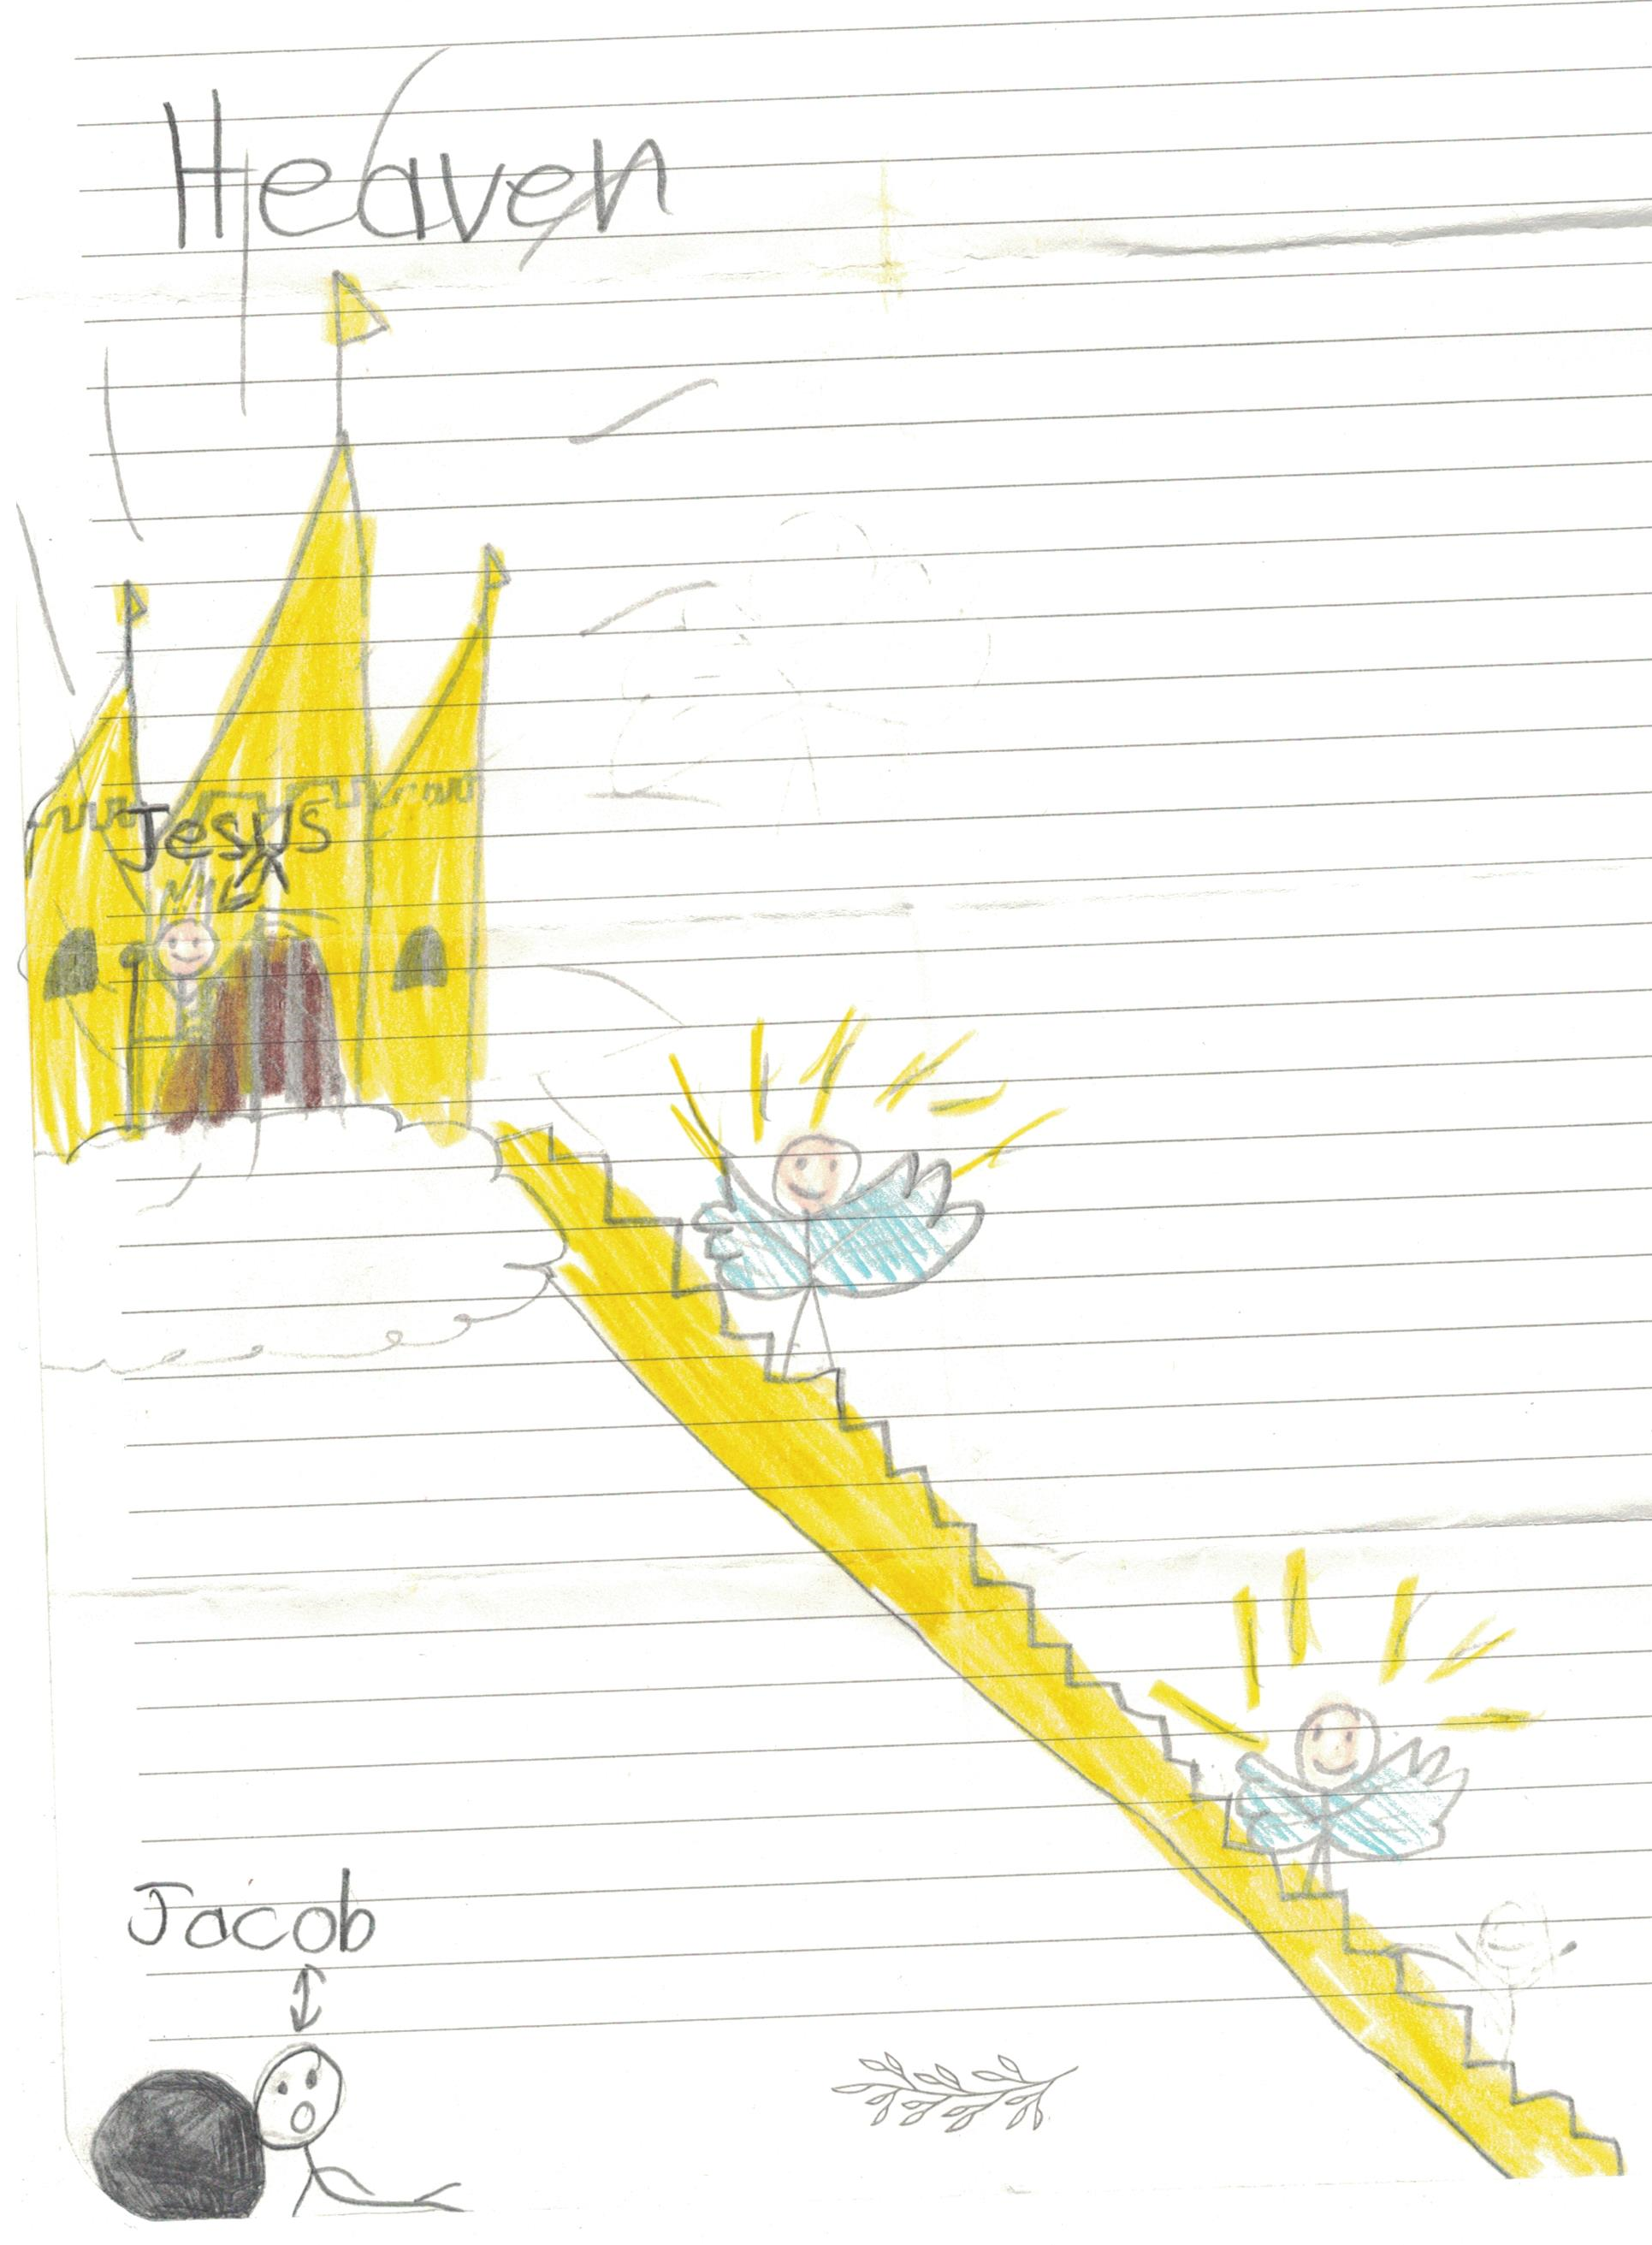 Heaven
Jesus
Jacob